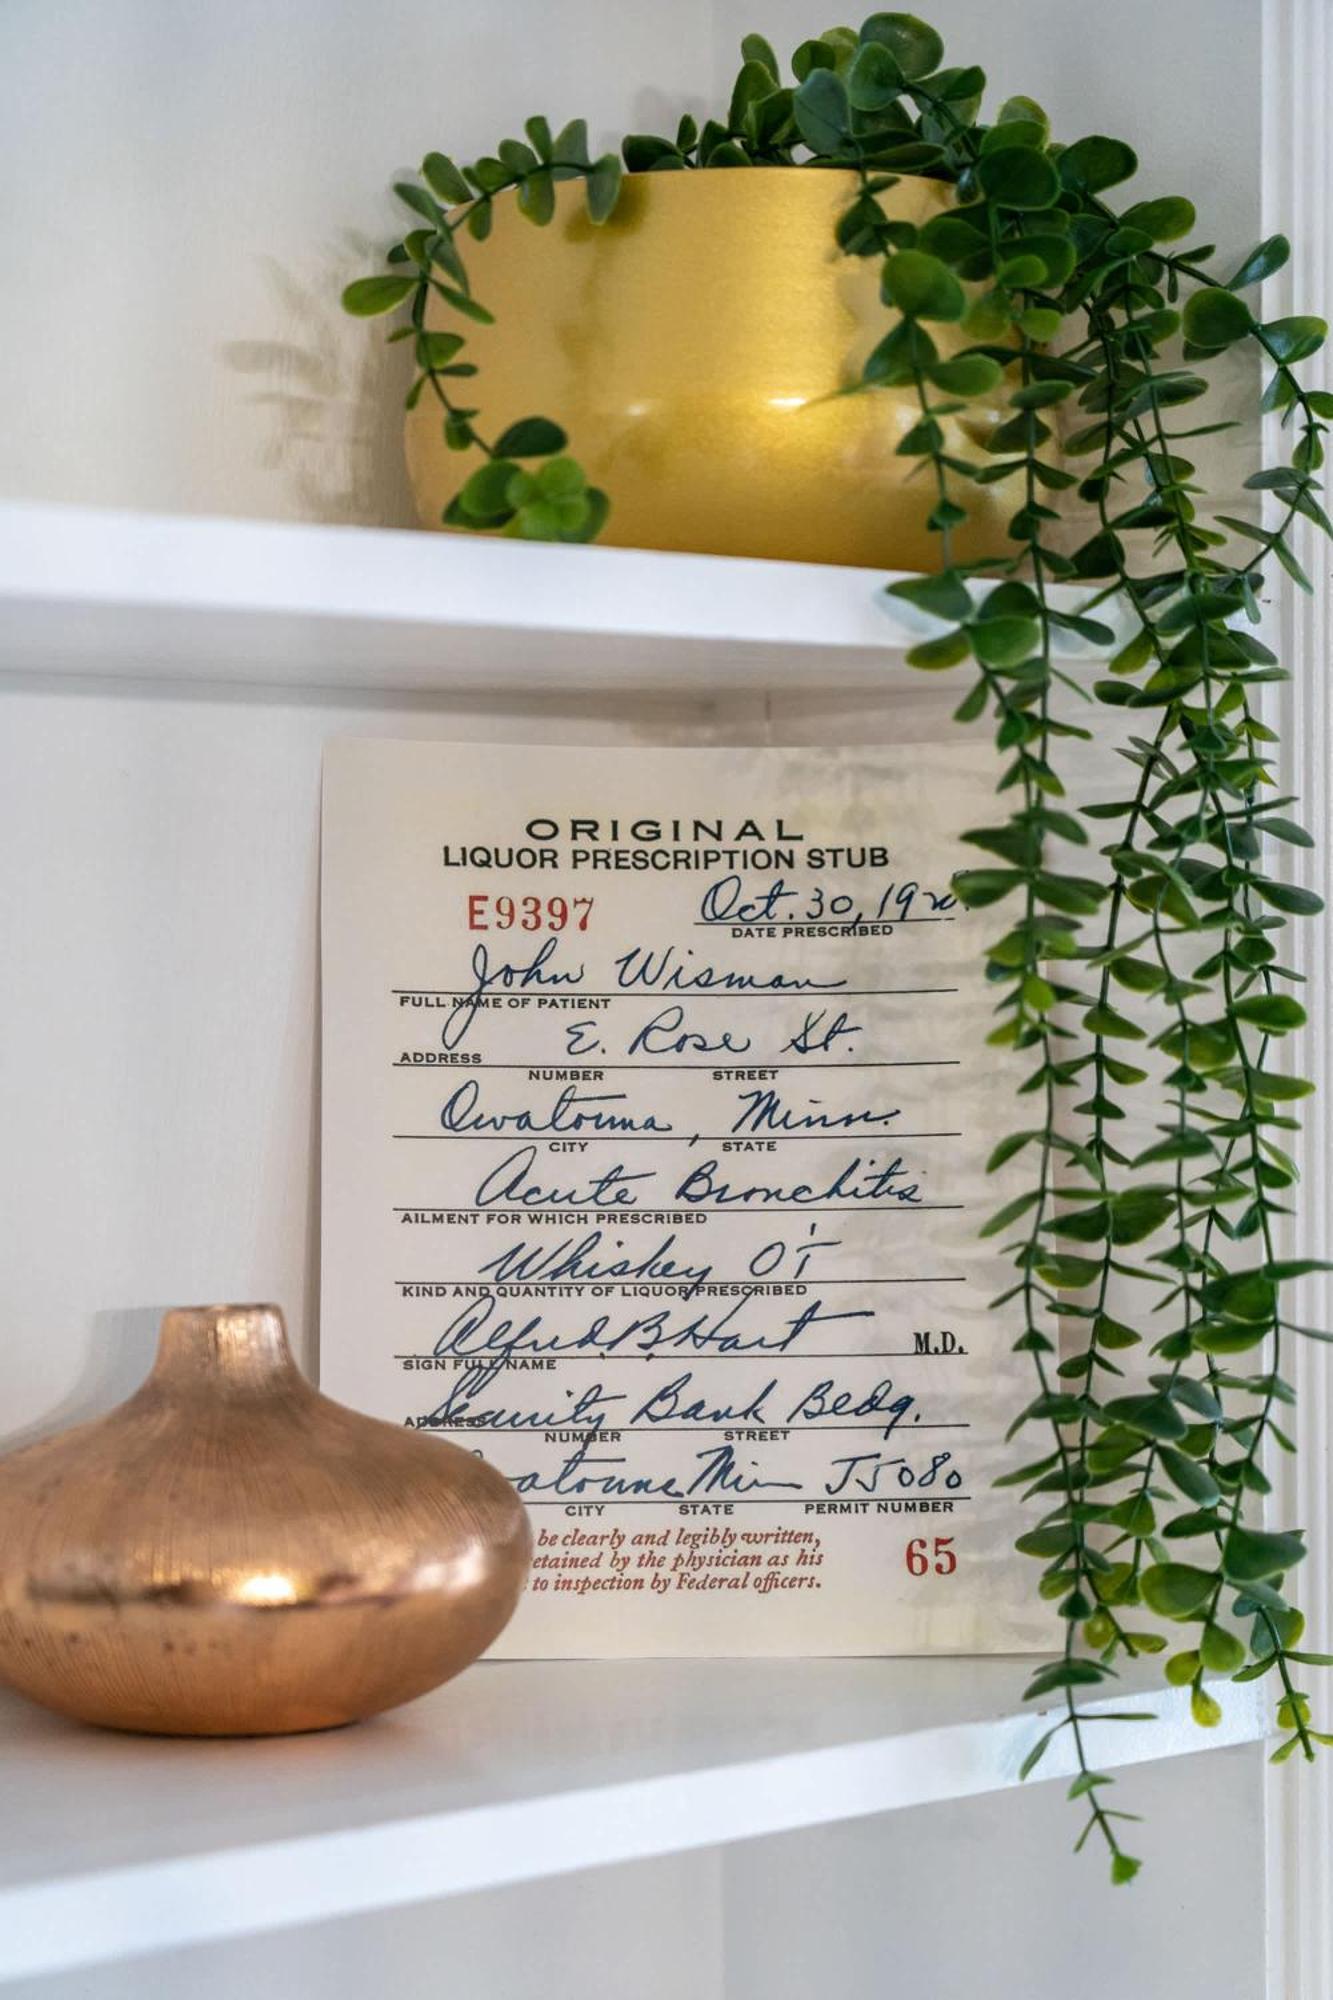 ORIGINAL
LIQUOR PRESCRIPTION STUB
E9397 Oct. 30, 19
DATE PRESCRIBED
John Wisman
FULL NAME OF PATIENT
E. Rose St.
ADDRESS
NUMBER STREET
Owatonna, Minn.
CITY STATE
Acute Bronchitis
AILMENT FOR WHICH PRESCRIBED
Whiskey
KIND AND QUANTITY OF LIQUOR PRESCRIBED
Alfred B Hart M.D.
SIGN FULL NAME
Security Bank Bldg.
ADDRESS
NUMBER STREET
atonna Min J5080
CITY STATE PERMIT NUMBER
be clearly and legibly written,
etained by the physician as his
to inspection by Federal officers.
65